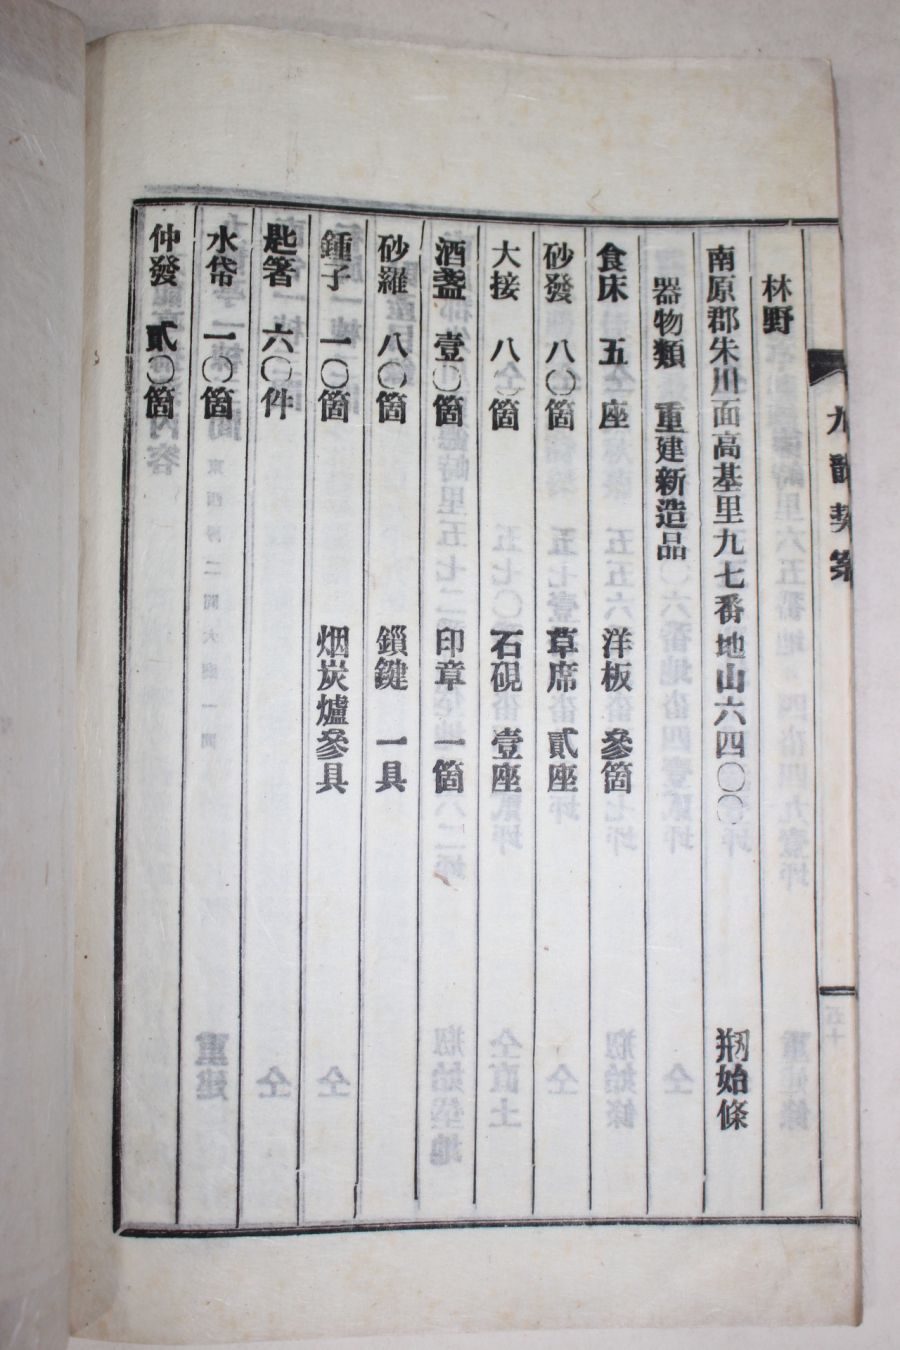 契案
林野
南原郡朱川面高基里九七番地山六四〇〇 刱始條
器物類 重建新造品
食床 五座 洋板 參箇
砂發 八〇箇 草席 貳座
大接 八〇箇 石硯 壹座
酒盞 壹〇箇 印章 一箇
砂羅 八〇箇 鎖鍵 一具
鍾子 一〇箇 烟炭爐參具
匙箸 六〇件
水帒 一〇箇
仲發 貳〇箇